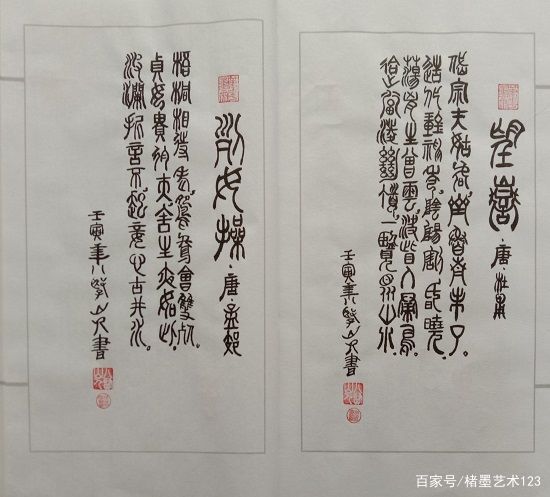 望嶽·唐·杜甫
岱宗夫如何齊魯青未了。
造化鍾神秀陰陽割昏曉。
蕩胸生曾雲決眥入歸鳥。
會當凌絕頂一覽眾山小。
壬寅年八山人書
列女操·唐·孟郊
梧桐相待老鴛鴦會雙死。
貞婦貴殉夫舍生亦如此。
波瀾誓不起妾心古井水。
壬寅年八山人書
百家号/楮墨艺术123